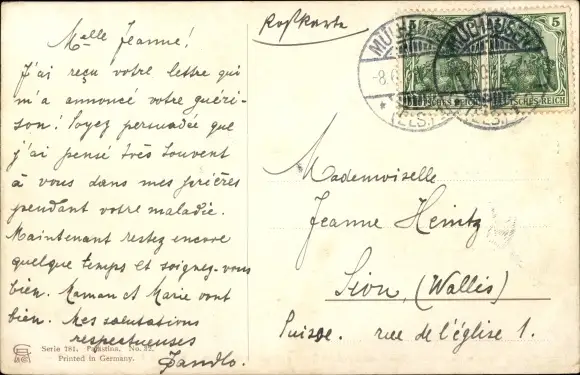 Melle Jeanne!
J'ai reçu votre lettre qui
m'a annoncé votre guéri-
son! Soyez persuadée que
j'ai pensé très souvent
à vous dans mes prières
pendant votre maladie.
Maintenant restez encore
quelque temps et soignez-vous
bien. Maman et Marie vont
bien. Mes salutations
respectueuses
Serie 781, Palästina, No. 32.
Printed in Germany.
Postkarte
MÜLHAUSEN
(ELS.)
MÜLHAUSEN
(ELS.)
5
5
DEUTSCHES REICH
DEUTSCHES REICH
Mademoiselle
Jeanne Heintz
Sion, (Wallis)
Suisse. rue de l'église 1.